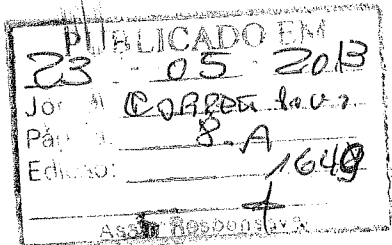 PUBLICADO EM
23 - 05 - 2013
Jornal CORREIO
Página: 8-A
Edição: 1649
Ass. Responsável